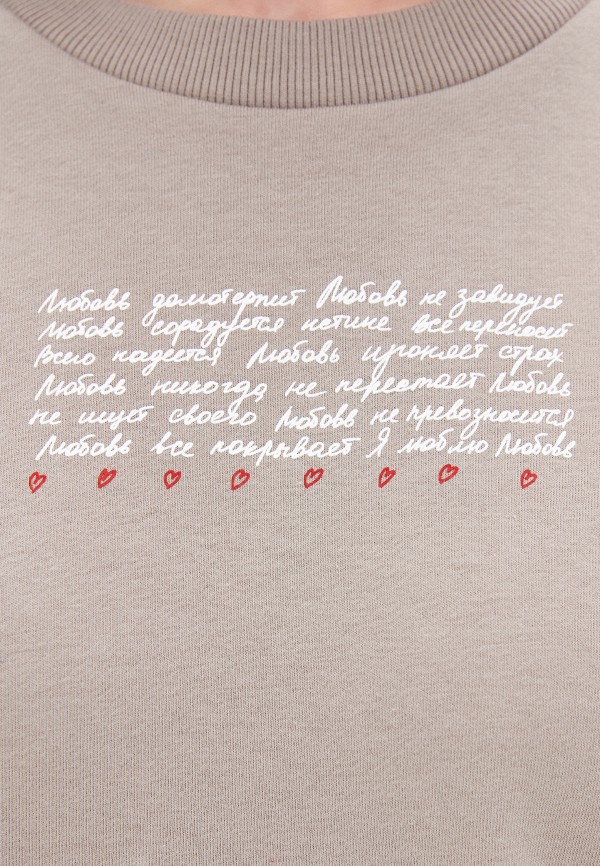 Любовь долготерпит Любовь не завидует
Любовь сорадуется истине Все переносит
Всего надеется Любовь изгоняет страх
Любовь никогда не перестает Любовь
не ищет своего Любовь не превозносится
Любовь все покрывает Я люблю Любовь